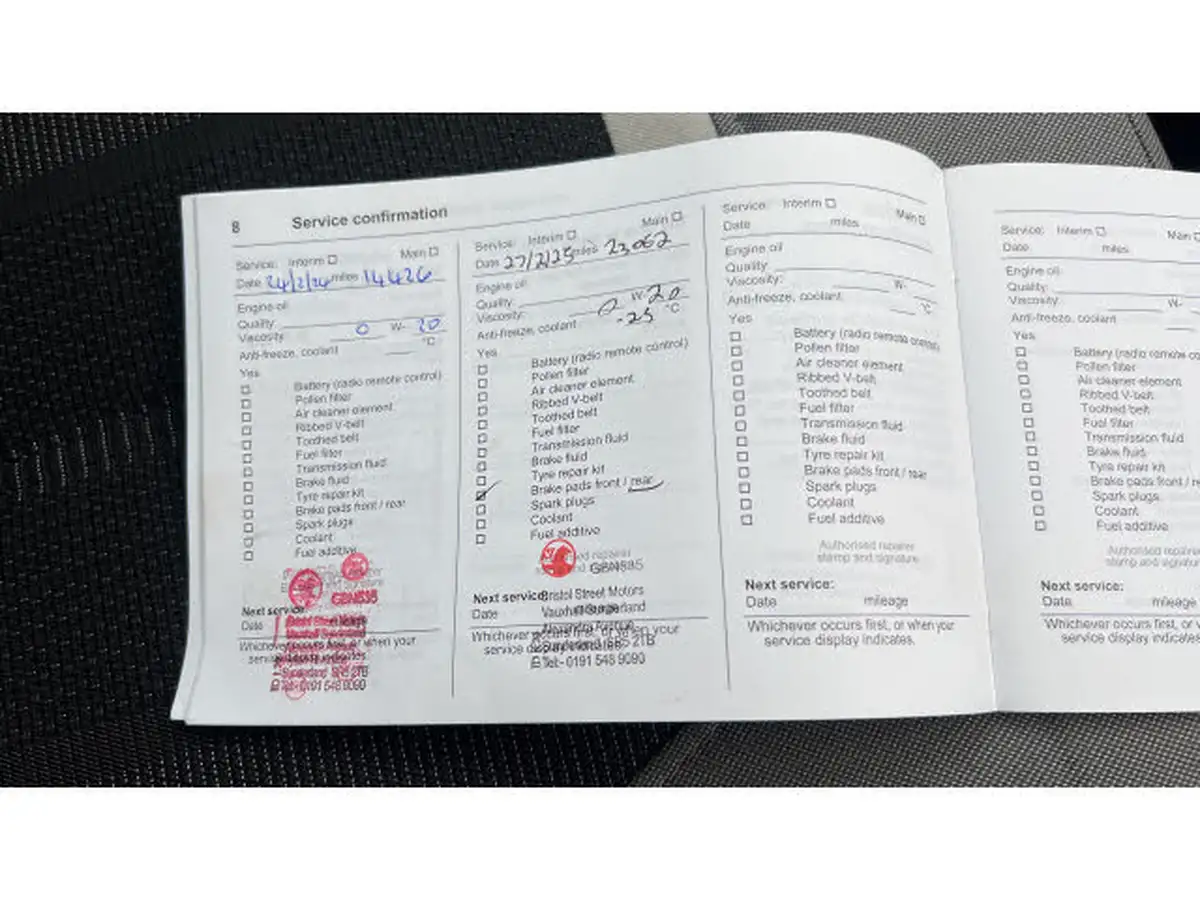 8 Service confirmation
Service: Interim Main
Date 24/2/24 miles 14426
Engine oil
Quality
Viscosity 0 W- 20
Anti-freeze, coolant °C
Yes
Battery (radio remote control)
Pollen filter
Air cleaner element
Ribbed V-belt
Toothed belt
Fuel filter
Transmission fluid
Brake fluid
Tyre repair kit
Brake pads front / rear
Spark plugs
Coolant
Fuel additive
and signature
GBN535
Next service:
Date
Bristol Street Motors
Vauxhall Sunderland
Whichever occurs first, or when your
service display indicates.
Sunderland SR5 2TB
Tel:- 0191 548 9090
Service: Interim Main
Date 27/2/25 miles 23062
Engine oil
Quality:
Viscosity: 0 W- 20
Anti-freeze, coolant -25 °C
Yes
Battery (radio remote control)
Pollen filter
Air cleaner element
Ribbed V-belt
Toothed belt
Fuel filter
Transmission fluid
Brake fluid
Tyre repair kit
Brake pads front / rear
Spark plugs
Coolant
Fuel additive
repairer
Next service:
Date
Bristol Street Motors
Vauxhall Sunderland
Alexandra Avenue
Whichever occurs first, or when your
service display indicates.
Sunderland SR5 2TB
Tel:- 0191 548 9090
Service: Interim Main
Date miles
Engine oil
Quality
Viscosity: W-
Anti-freeze, coolant °C
Yes
Battery (radio remote control)
Pollen filter
Air cleaner element
Ribbed V-belt
Toothed belt
Fuel filter
Transmission fluid
Brake fluid
Tyre repair kit
Brake pads front / rear
Spark plugs
Coolant
Fuel additive
Authorised repairer
stamp and signature
Next service:
Date mileage
Whichever occurs first, or when your
service display indicates.
Service: Interim Main
Date: miles
Engine oil
Quality:
Viscosity: W-
Anti-freeze, coolant
Yes
Battery (radio remote co
Pollen filter
Air cleaner element
Ribbed V-belt
Toothed belt
Fuel filter
Transmission fluid
Brake fluid
Tyre repair kit
Brake pads front / re
Spark plugs
Coolant
Fuel additive
Authorised repairer
stamp and signature
Next service:
Date mileage
Whichever occurs first, or v
service display indicates